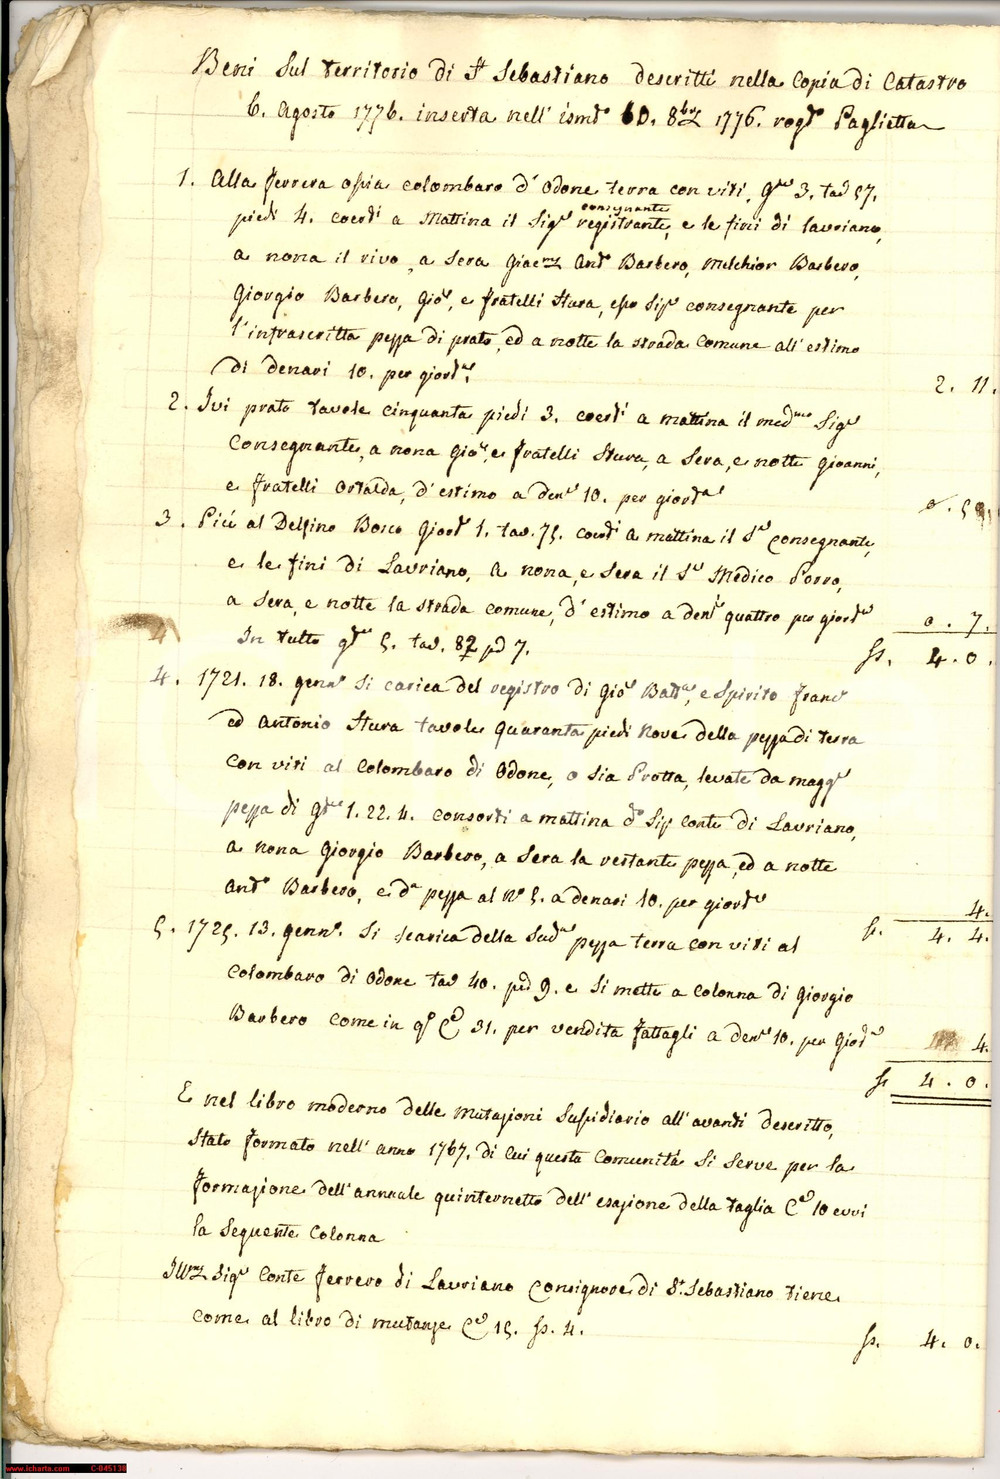 Beni sul territorio di St Sebastiano descritti nella Copia di Catastro
6. Agosto 1776. inserta nell' ismto 10. 8brz 1776. rogto Paglietta
1. Alla ferrera ossia colombaro d' Odone terra con viti, gte 3. tad 57.
piedi 4. coerti a mattina il Sigr registrante, e le fini di Lauriano,
consegnante
a nona il rivo, a sera Anto Barbero, Melchior Barbero,
Giorgio Barbero, Gioi, e fratelli Stura, esso Sigr consegnante per
l'infrascritta pezza di prato, ed a notte la strada comune all' estimo
di denari 10. per giorta
2. 11.
2. Ivi prato tavole cinquanta piedi 3. coerti a mattina il medmo Sigr
Consegnante, a nona Gioi, e fratelli Stura, a sera, e notte Gioanni,
e fratelli Ortalda, d' estimo a denri 10. per giorta
3. Più al Delfino Bosco Giorta 1. tav. 75. coerti a mattina il Sr consegnante,
e le fini di Lauriano, a nona, e sera il Sr Medico Porro,
a sera, e notte la strada comune, d' estimo a denri quattro per giorta
0. 7.
In tutto gte 5. tad. 82 pd 7.
ss. 4. 0.
4. 1721. 18. gennro si carica del registro di Gioi Batta, e Spirito Franco
ed Antonio Stura tavole quaranta piedi nove della pezza di terra
con viti al Colombaro di Odone, o sia Protta, levate da maggr
pezza di gte 1. 22. 4. consorti a mattina do Sigr Conte di Lauriano,
a nona Giorgio Barbero, a sera la restante pezza, ed a notte
Anto Barbero, e da pezza al No 5. a denari 10. per giorta
4.
5. 1725. 13. gennro. si scarica della sudta pezza terra con viti al
s. 4. 4.
Colombaro di Odone tad 40. pdi 9. e si mette a colonna di Giorgio
Barbero come in qo Co 31. per vendita fattagli a denri 10. per Giorta
4.
s. 4. 0.
E nel libro moderno delle mutazioni susidiario all' avanti descritto,
stato formato nell' anno 1767. di cui questa Comunità si serve per la
formazione dell' annuale quinternetto dell' esazione della taglia Co 10 evvi
la seguente Colonna
Illmz Sigr Conte Ferrero di Lauriano Consignore di St. Sebastiano tiene
come al libro di mutanze Co 15. ss. 4.
ss. 4. 0.
www.icharta.com C-045138